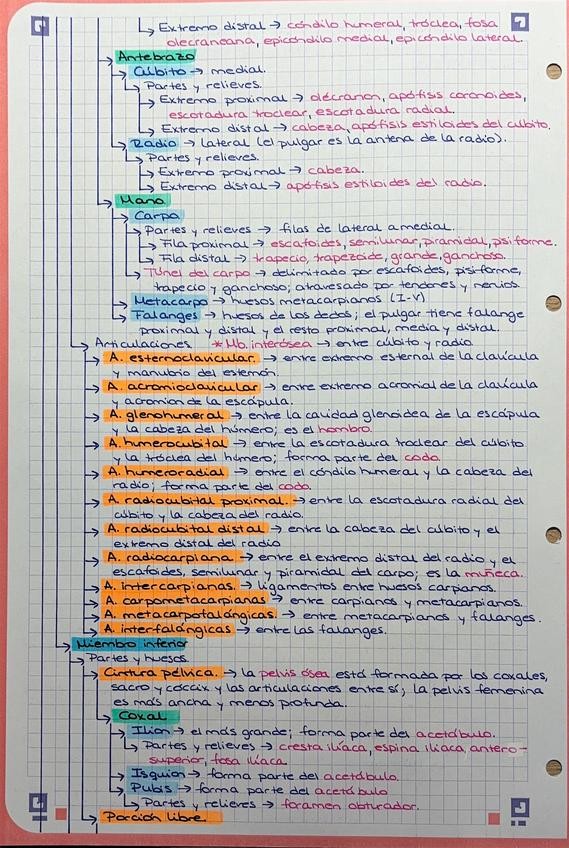 → Extremo distal → cóndilo humeral, tróclea, fosa
olecraneana, epicóndilo medial, epicóndilo lateral.
→ Antebrazo
→ Cúbito → medial.
→ Partes y relieves.
→ Extremo proximal → olécranon, apófisis coronoides,
escotadura troclear, escotadura radial.
→ Extremo distal → cabeza, apófisis estiloides del cúbito.
→ Radio → lateral (el pulgar es la antena de la radio).
→ Partes y relieves.
→ Extremo proximal → cabeza.
→ Extremo distal → apófisis estiloides del radio.
→ Mano
→ Carpo
→ Partes y relieves → filas de lateral a medial.
→ Fila proximal → escafoides, semilunar, piramidal, pisiforme.
→ Fila distal → trapecio, trapezoide, grande, ganchoso.
→ Túnel del carpo → delimitado por escafoides, pisiforme,
trapecio y ganchoso; atravesado por tendones y nervios.
→ Metacarpo → huesos metacarpianos (I-V)
→ Falanges → huesos de los dedos; el pulgar tiene falange
proximal y distal y el resto proximal, media y distal.
→ Articulaciones * Mb. interósea → entre cúbito y radio
→ A. esternoclavicular. → entre extremo esternal de la clavícula
y manubrio del esternón.
→ A. acromioclavicular → entre extremo acromial de la clavícula
y acromion de la escápula.
→ A. glenohumeral → entre la cavidad glenoidea de la escápula
y la cabeza del húmero; es el hombro.
→ A. humerocubital → entre la escotadura troclear del cúbito
y la tróclea del húmero; forma parte del codo.
→ A. humeroradial → entre el cóndilo humeral y la cabeza del
radio; forma parte del codo.
→ A. radiocubital proximal. → entre la escotadura radial del
cúbito y la cabeza del radio.
→ A. radiocubital distal → entre la cabeza del cúbito y el
extremo distal del radio
→ A. radiocarpiana. → entre el extremo distal del radio y el
escafoides, semilunar y piramidal del carpo; es la muñeca.
→ A. intercarpianas. → ligamentos entre huesos carpianos.
→ A. carpometacarpianas → entre carpianos y metacarpianos.
→ A. metacarpofalángicas. → entre metacarpianos y falanges.
→ A. interfalángicas → entre las falanges.
→ Miembro inferior
→ Partes y huesos.
→ Cintura pélvica. → la pelvis ósea está formada por los coxales,
sacro y cóccix y las articulaciones entre sí; la pelvis femenina
es más ancha y menos profunda.
→ Coxal
→ Ilion → el más grande; forma parte del acetábulo.
→ Partes y relieves → cresta ilíaca, espina ilíaca, antero-
superior, fosa ilíaca
→ Isquion → forma parte del acetábulo.
→ Pubis → forma parte del acetábulo
→ Partes y relieves → foramen obturador.
→ Porción libre.